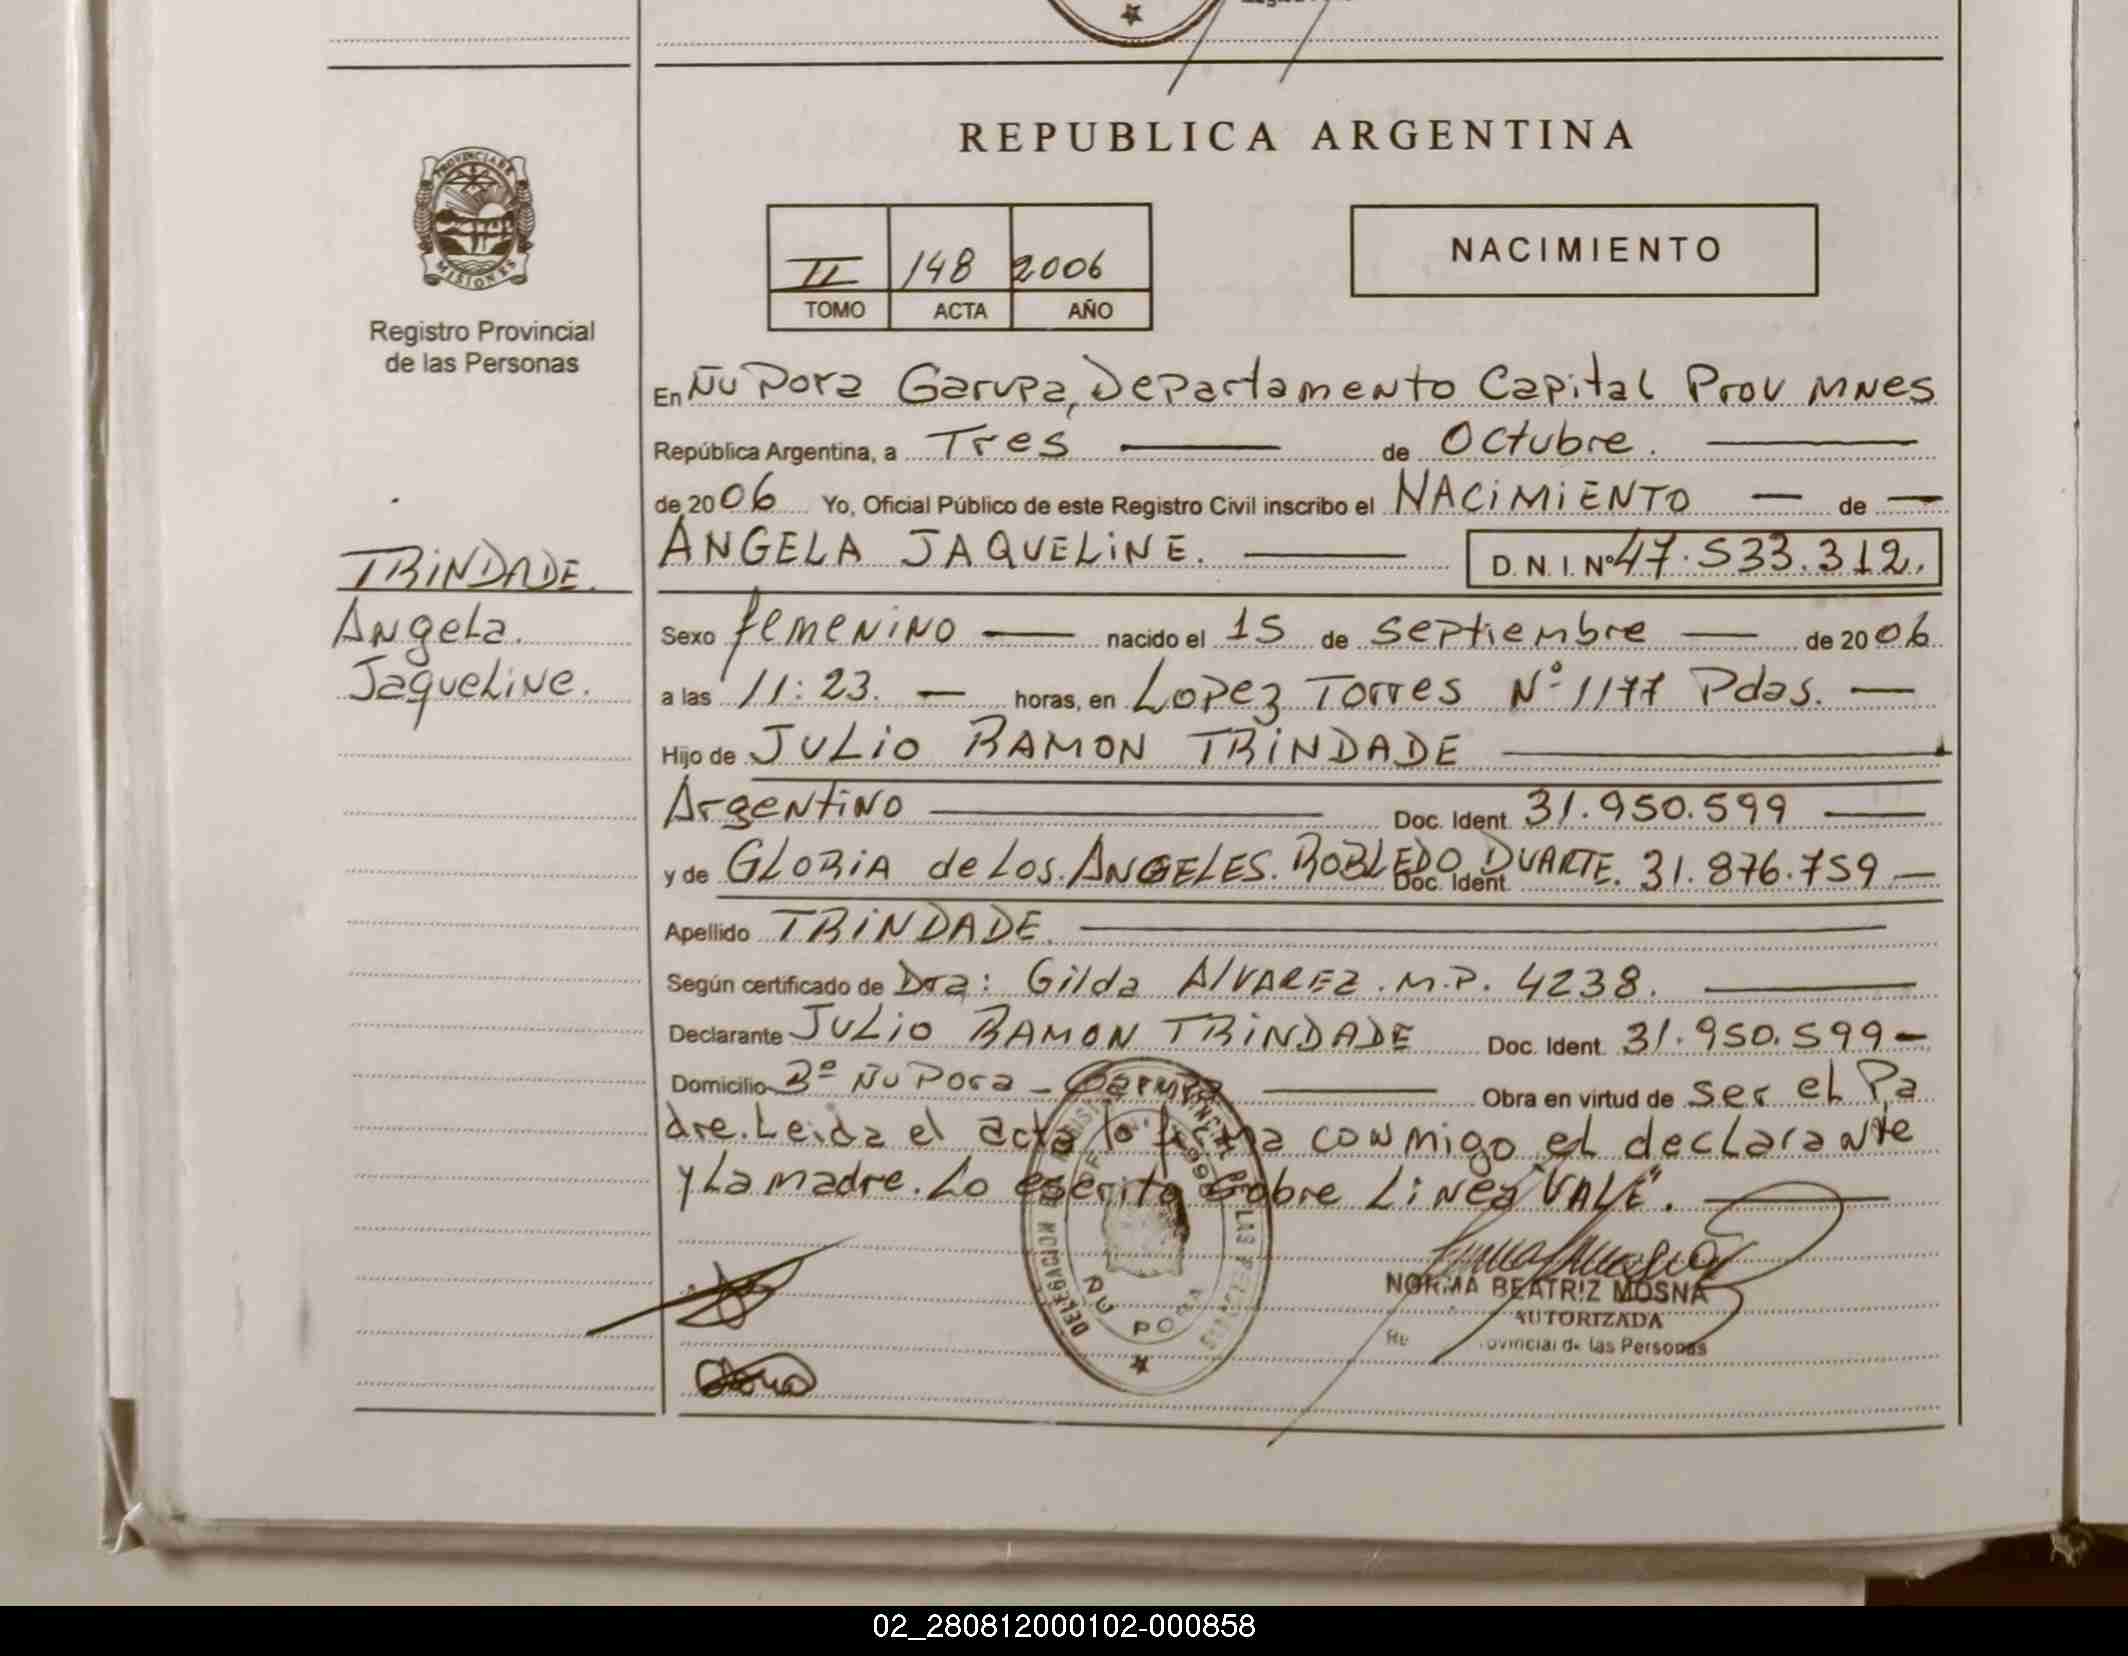 REPUBLICA ARGENTINA
PROVINCIA DE
MISIONES
Registro Provincial
de las Personas
II 148 2006
TOMO ACTA AÑO
NACIMIENTO
En Ñu Pora Garupa, Departamento Capital Prov MNES
República Argentina, a Tres de Octubre.
de 2006 Yo, Oficial Público de este Registro Civil inscribo el NACIMIENTO de
ANGELA JAQUELINE. D. N. I. Nº 47.533.312.
TRINDADE.
Angela.
Jaqueline.
Sexo femenino nacido el 15 de septiembre de 2006
a las 11:23. horas, en Lopez Torres Nº 1177 Pdas.
Hijo de JULIO RAMON TRINDADE
Argentino Doc. Ident. 31.950.599
y de GLORIA de Los ANGELES. ROBLEDO DUARTE. Doc. Ident. 31.876.759
Apellido TRINDADE.
Según certificado de Dra: Gilda ALVAREZ. M.P. 4238.
Declarante JULIO RAMON TRINDADE Doc. Ident. 31.950.599
Domicilio Bº Ñu Pora - Garupa Obra en virtud de ser el Pa
dre. Leida el acta lo firma conmigo el declarante
y La madre. Lo escrito sobre Linea "VALE".
ÑU PORA
NORMA BEATRIZ MOSNA
AUTORIZADA
ovincial de las Personas
02_280812000102-000858